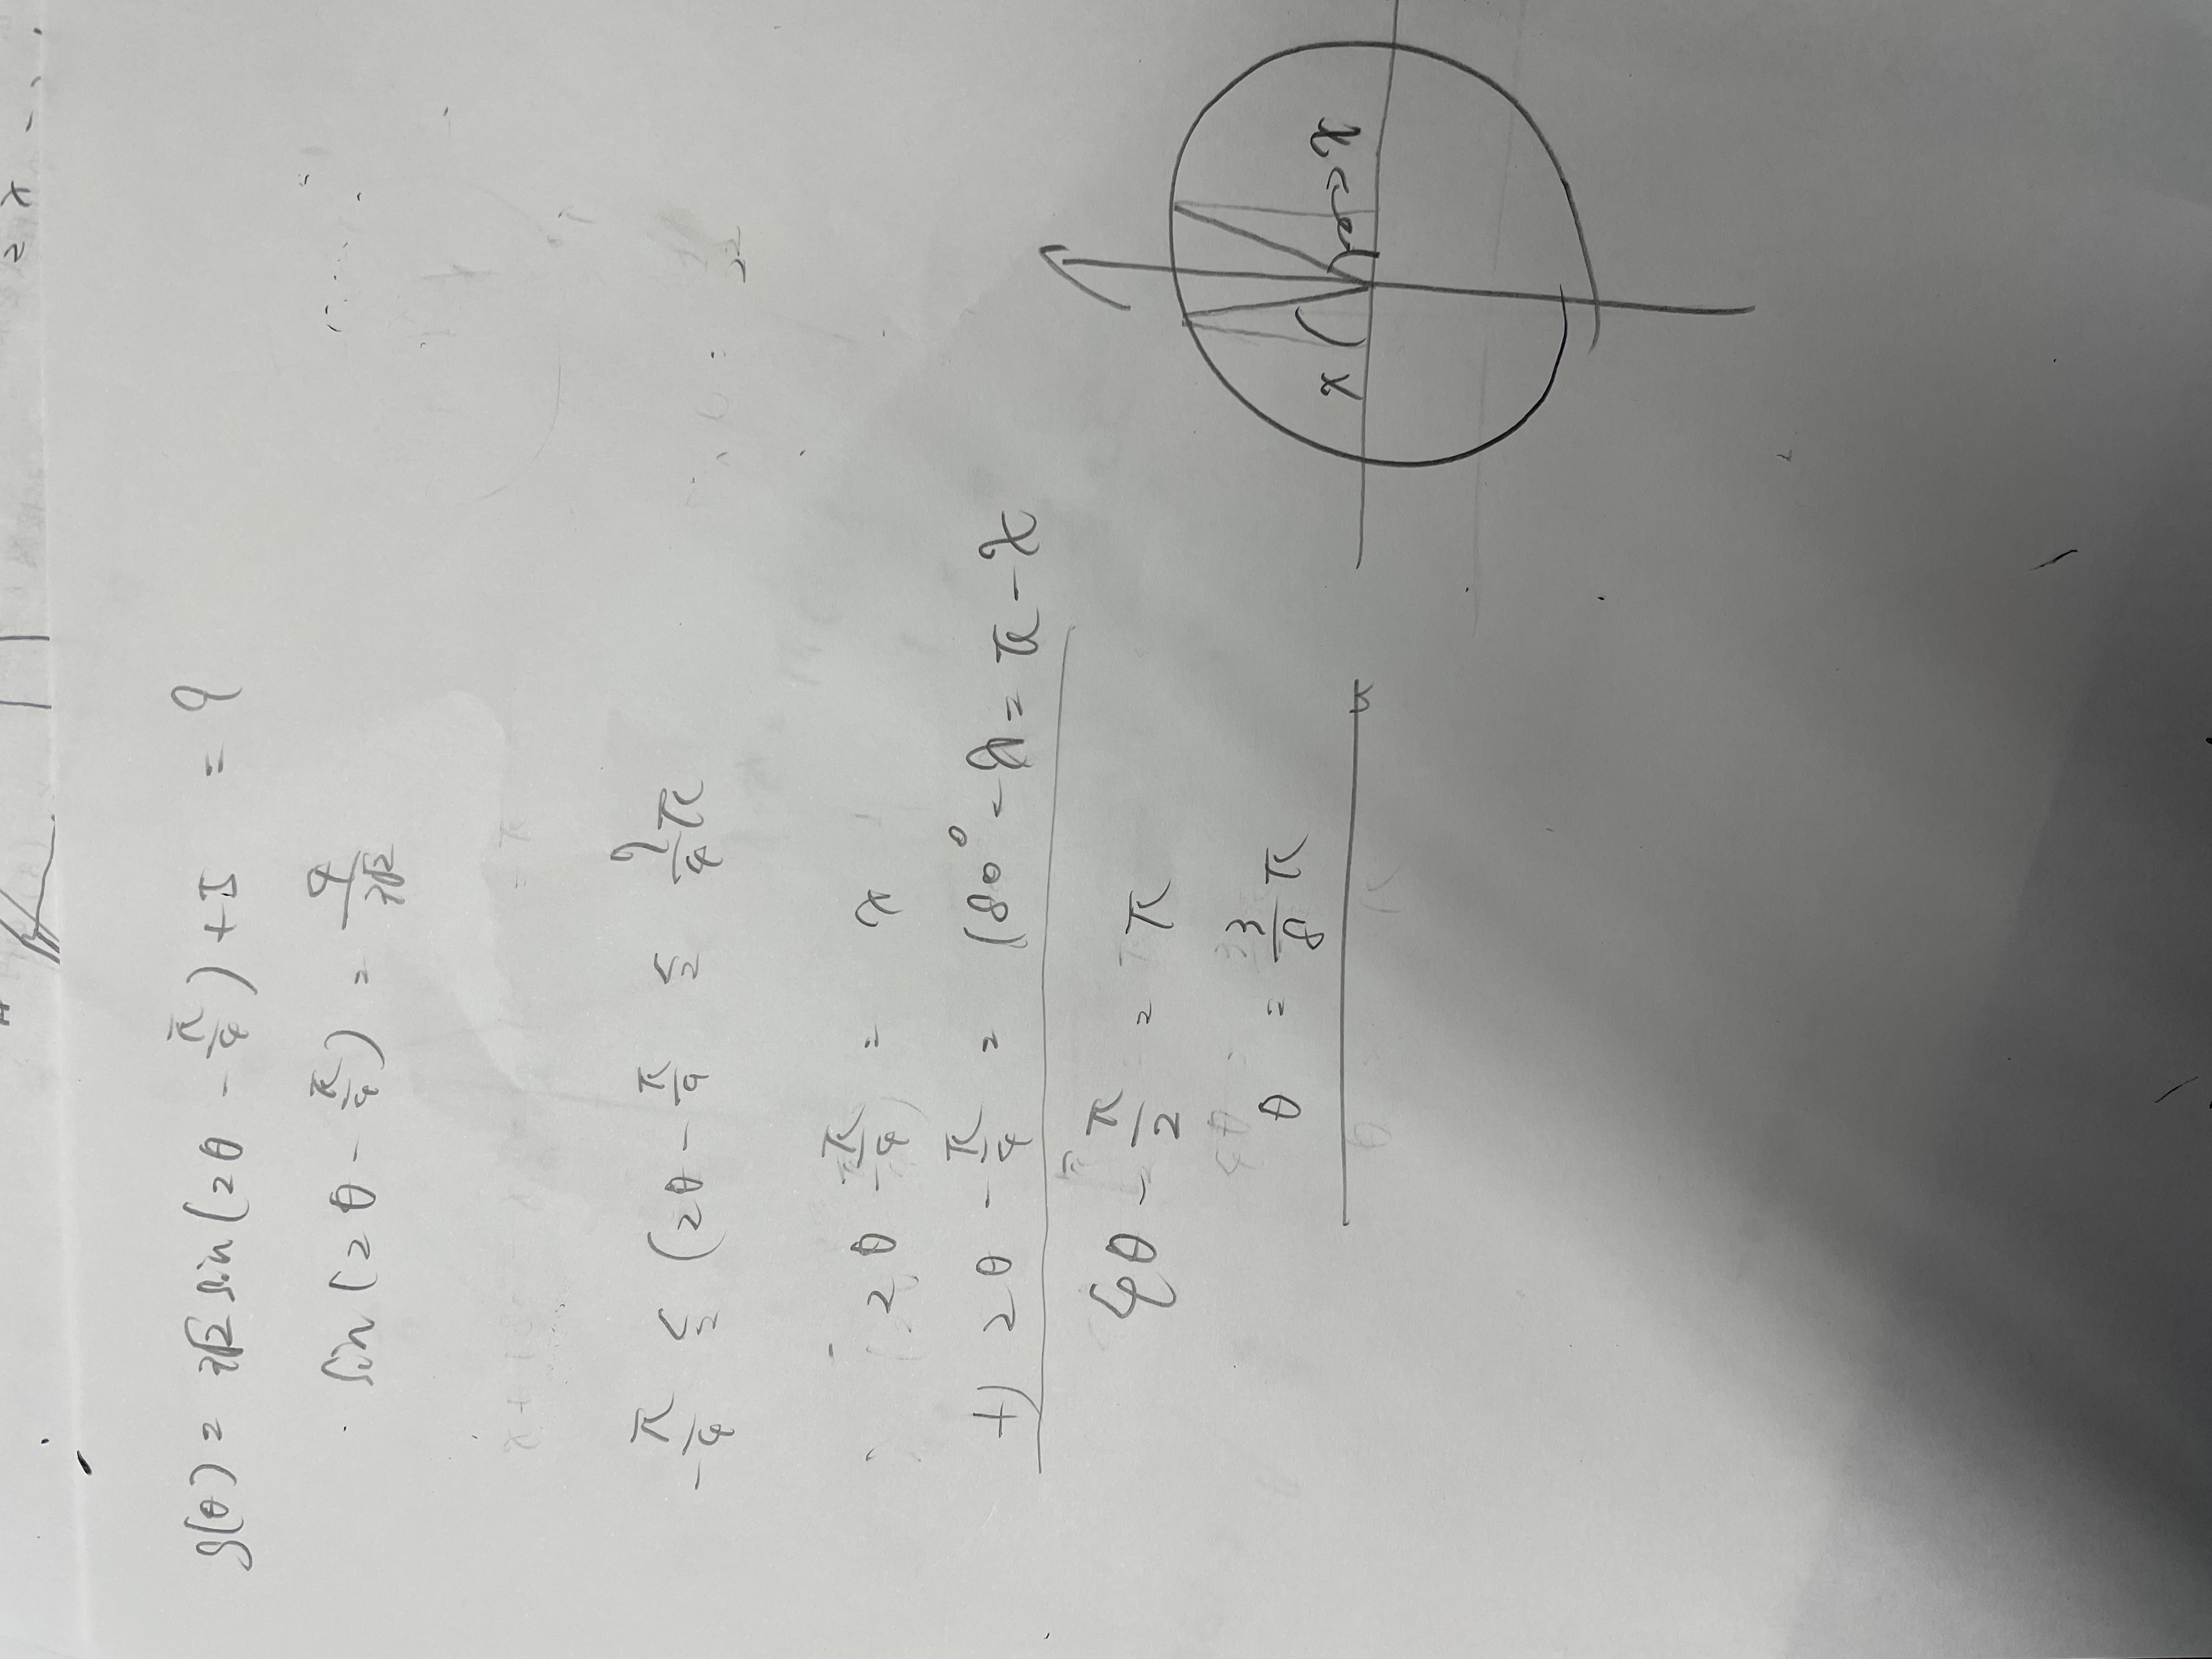 g(θ) = 3√2 sin(2θ - π/4) + 5 = 9
sin(2θ - π/4) = 4/3√2
-π/4 ≤ (2θ - π/4 ≤ 7/4 π
2θ - π/4 = x
+) 2θ - π/4 = 180° - x = π - x
4θ - π/2 = π
θ = 3/8 π
x
x